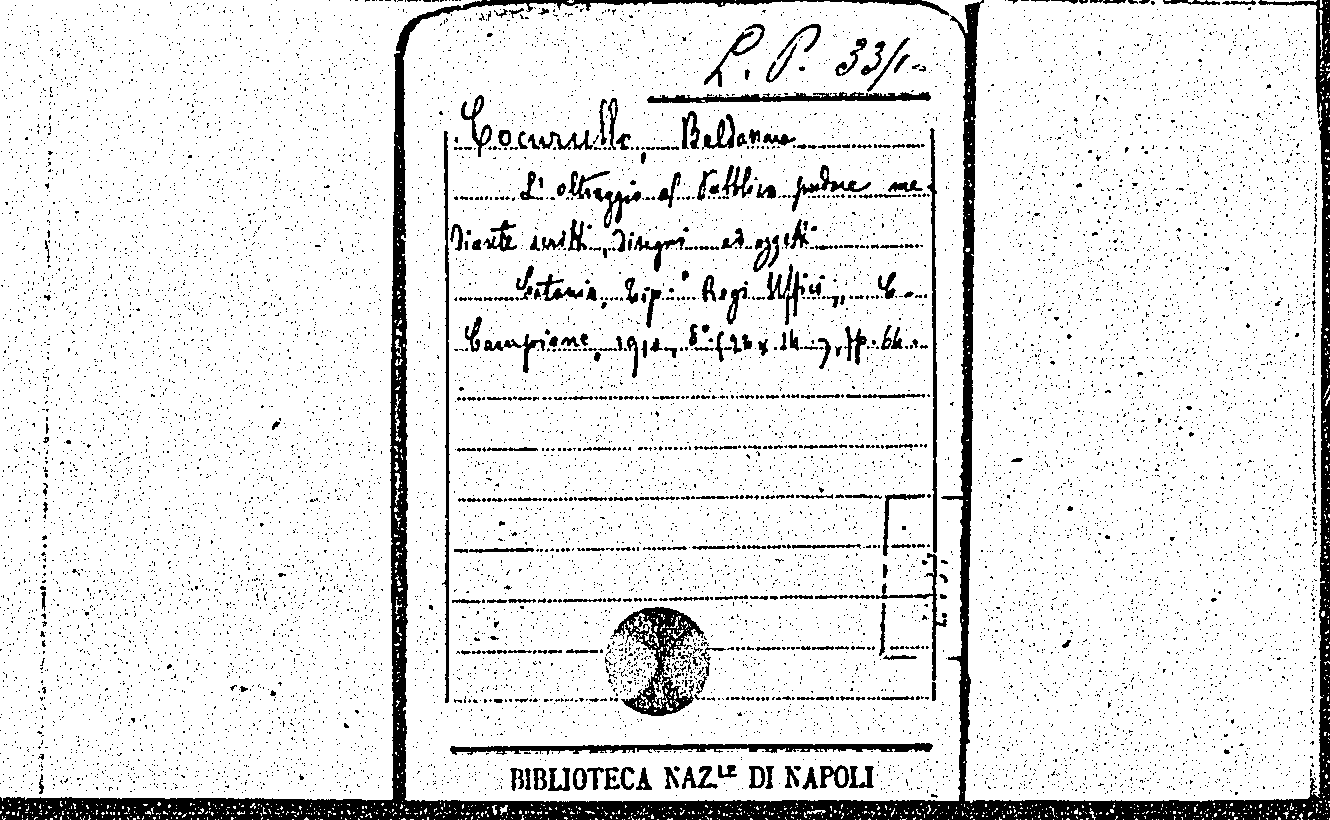 L. P. 33/1.
Cocurullo, Baldassare
L'oltraggio al pubblico pudore me-
diante scritti, disegni ed oggetti.
Catania, Tip. "Regi Uffici", C.
Campione, 8° p. 64.
BIBLIOTECA NAZ.LE DI NAPOLI